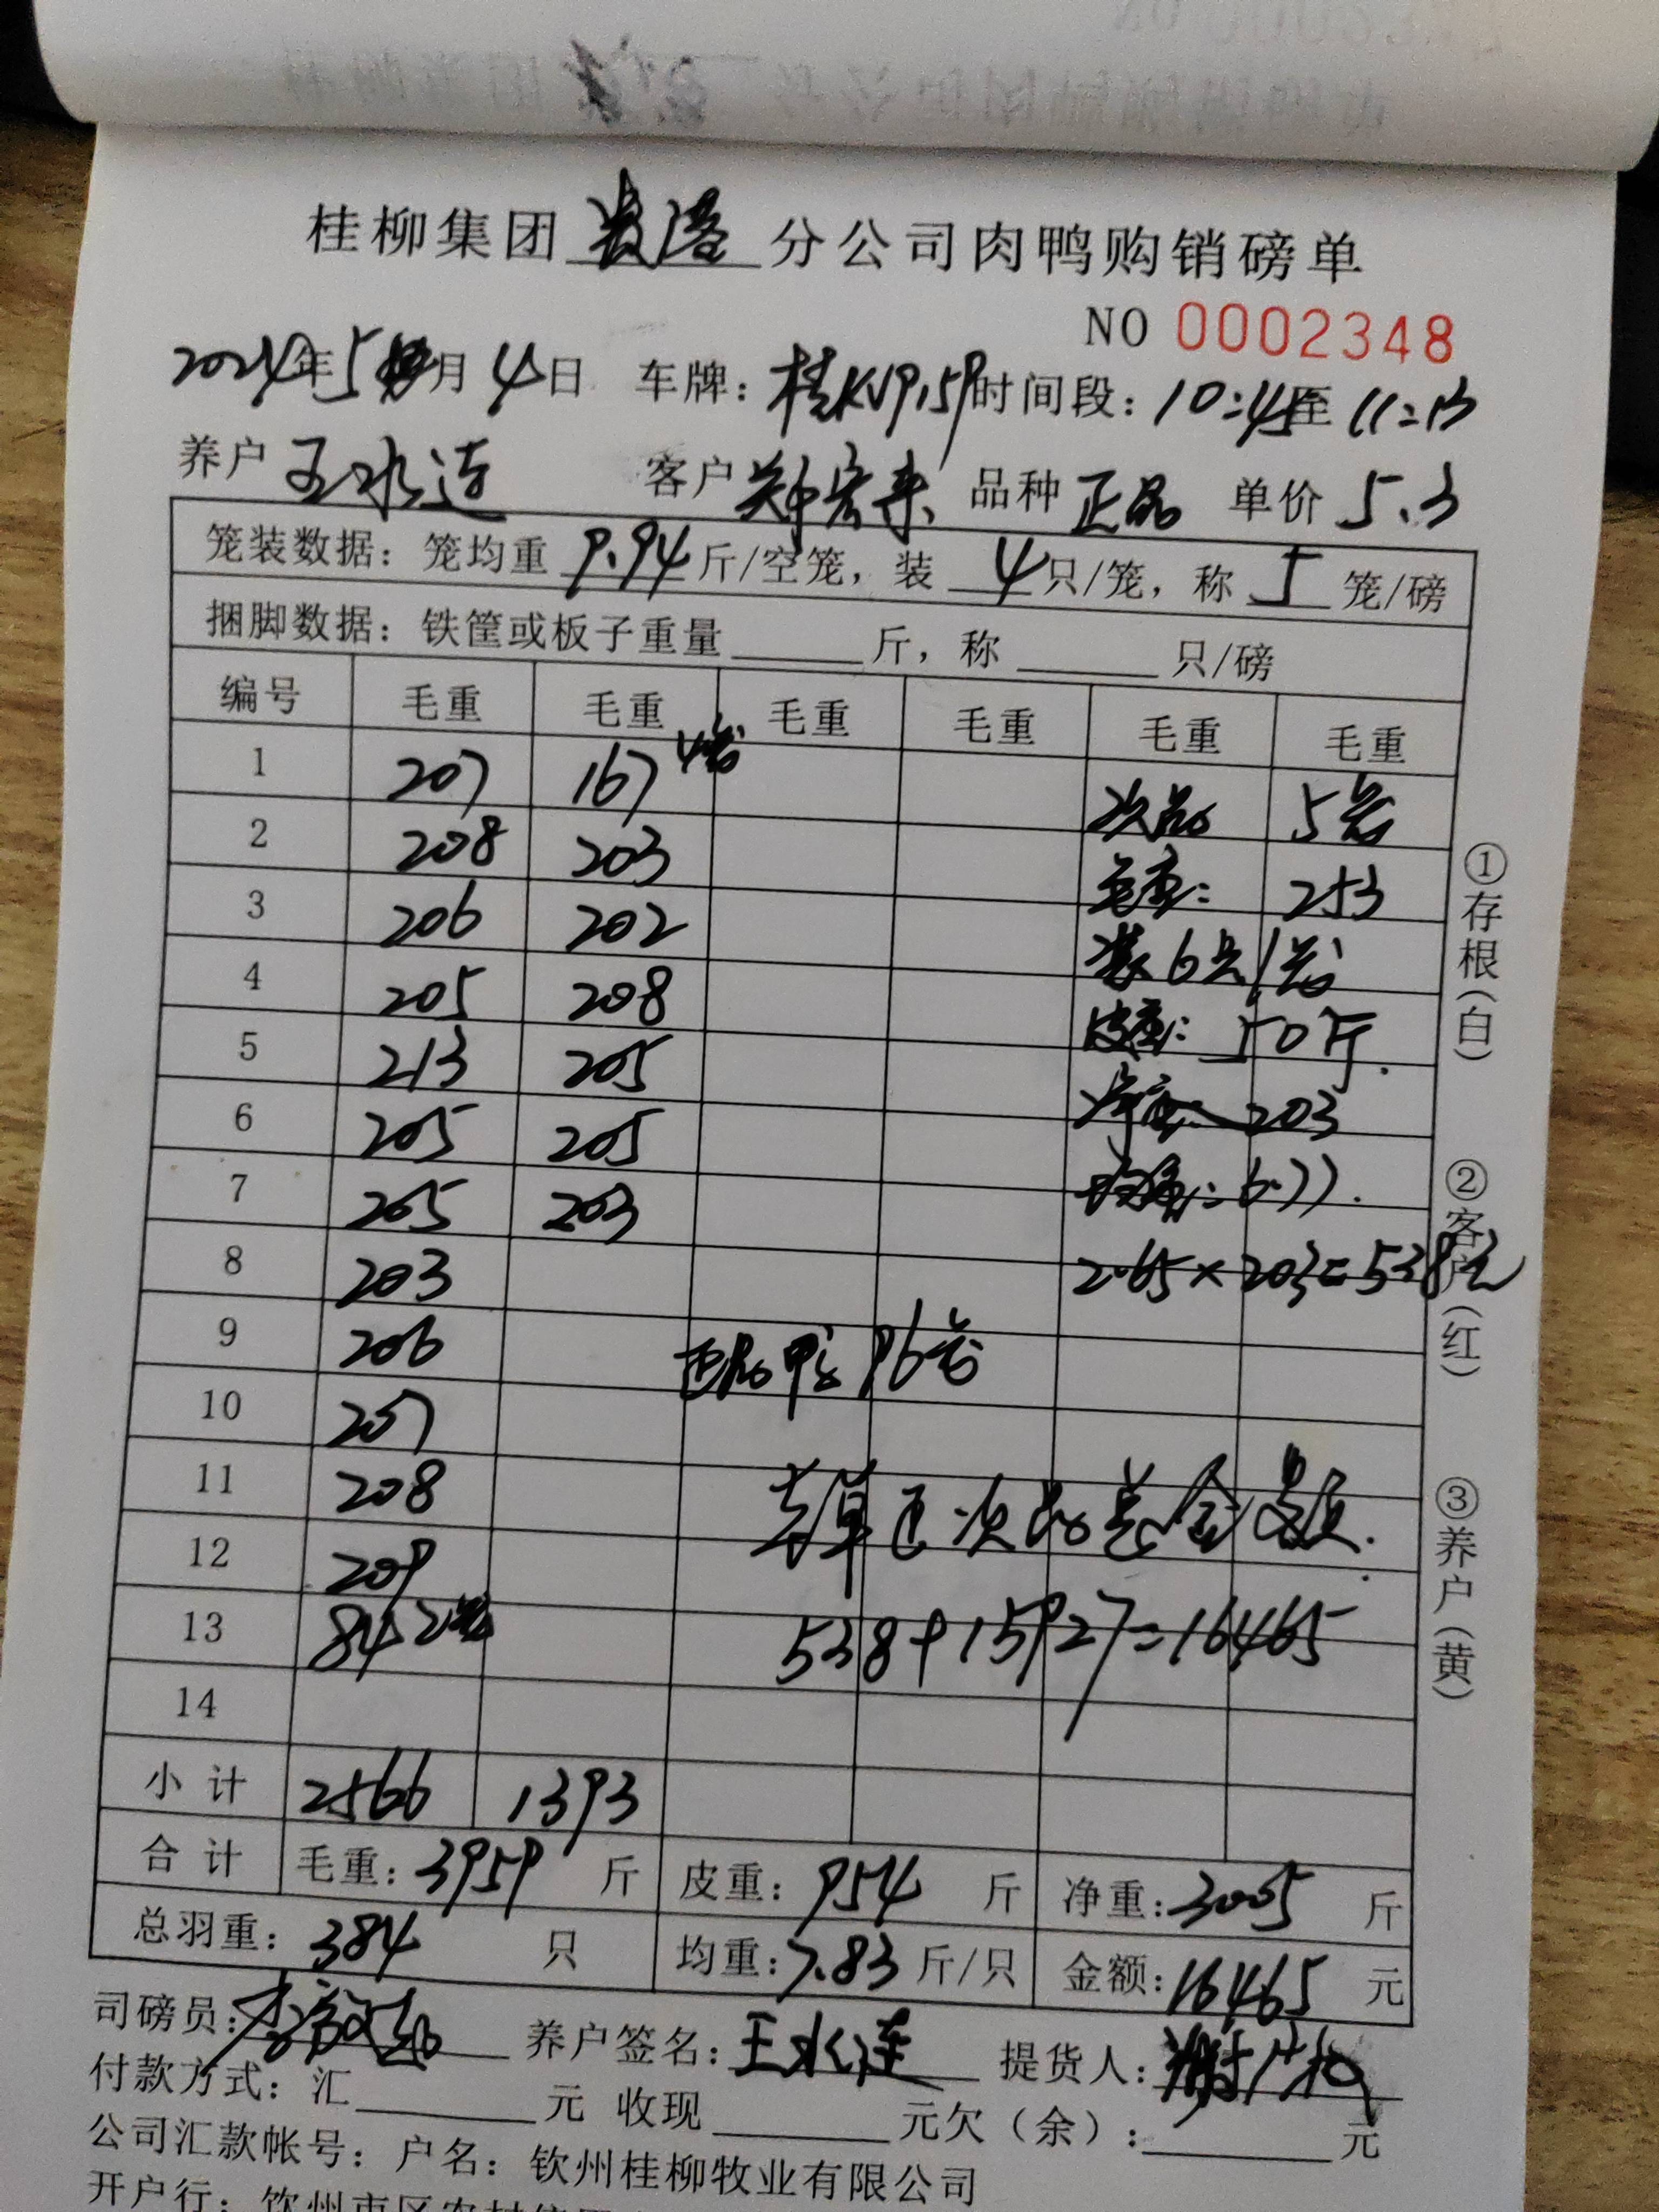 桂柳集团 分公司肉鸭购销磅单
NO 0002348
2024年5月4日 车牌: 时间段: 10:45至 11:13
养户 王水连 客户 郑宏来 品种 正品 单价 5.3
笼装数据: 笼均重 9.94 斤/空笼, 装 4 只/笼, 称 5 笼/磅
捆脚数据: 铁筐或板子重量 斤, 称 只/磅
编号 毛重 毛重 毛重 毛重 毛重 毛重
1 207 167 4笼
2 208 203 次品 5笼
3 206 202 毛重: 253
4 205 208 装6只/笼
5 213 205 皮重: 50斤.
6 205 205 净重: 203
7 205 203 均重: 6.77.
8 203 2.65×203=538元
9 206 正品鸭 96笼
10 207
11 208 正次品总金额.
12 209
13 84 2笼 538+15927=16465
14
小计 2566 1393
合计 毛重: 3959 斤 皮重: 954 斤 净重: 3005 斤
总羽重: 384 只 均重: 7.83 斤/只 金额: 16465 元
司磅员: 养户签名: 王水连 提货人:
付款方式: 汇 元 收现 元欠(余): 元
公司汇款帐号: 户名: 钦州桂柳牧业有限公司
开户行: 钦州市区农村信用
①存根(白)
②客户(红)
③养户(黄)